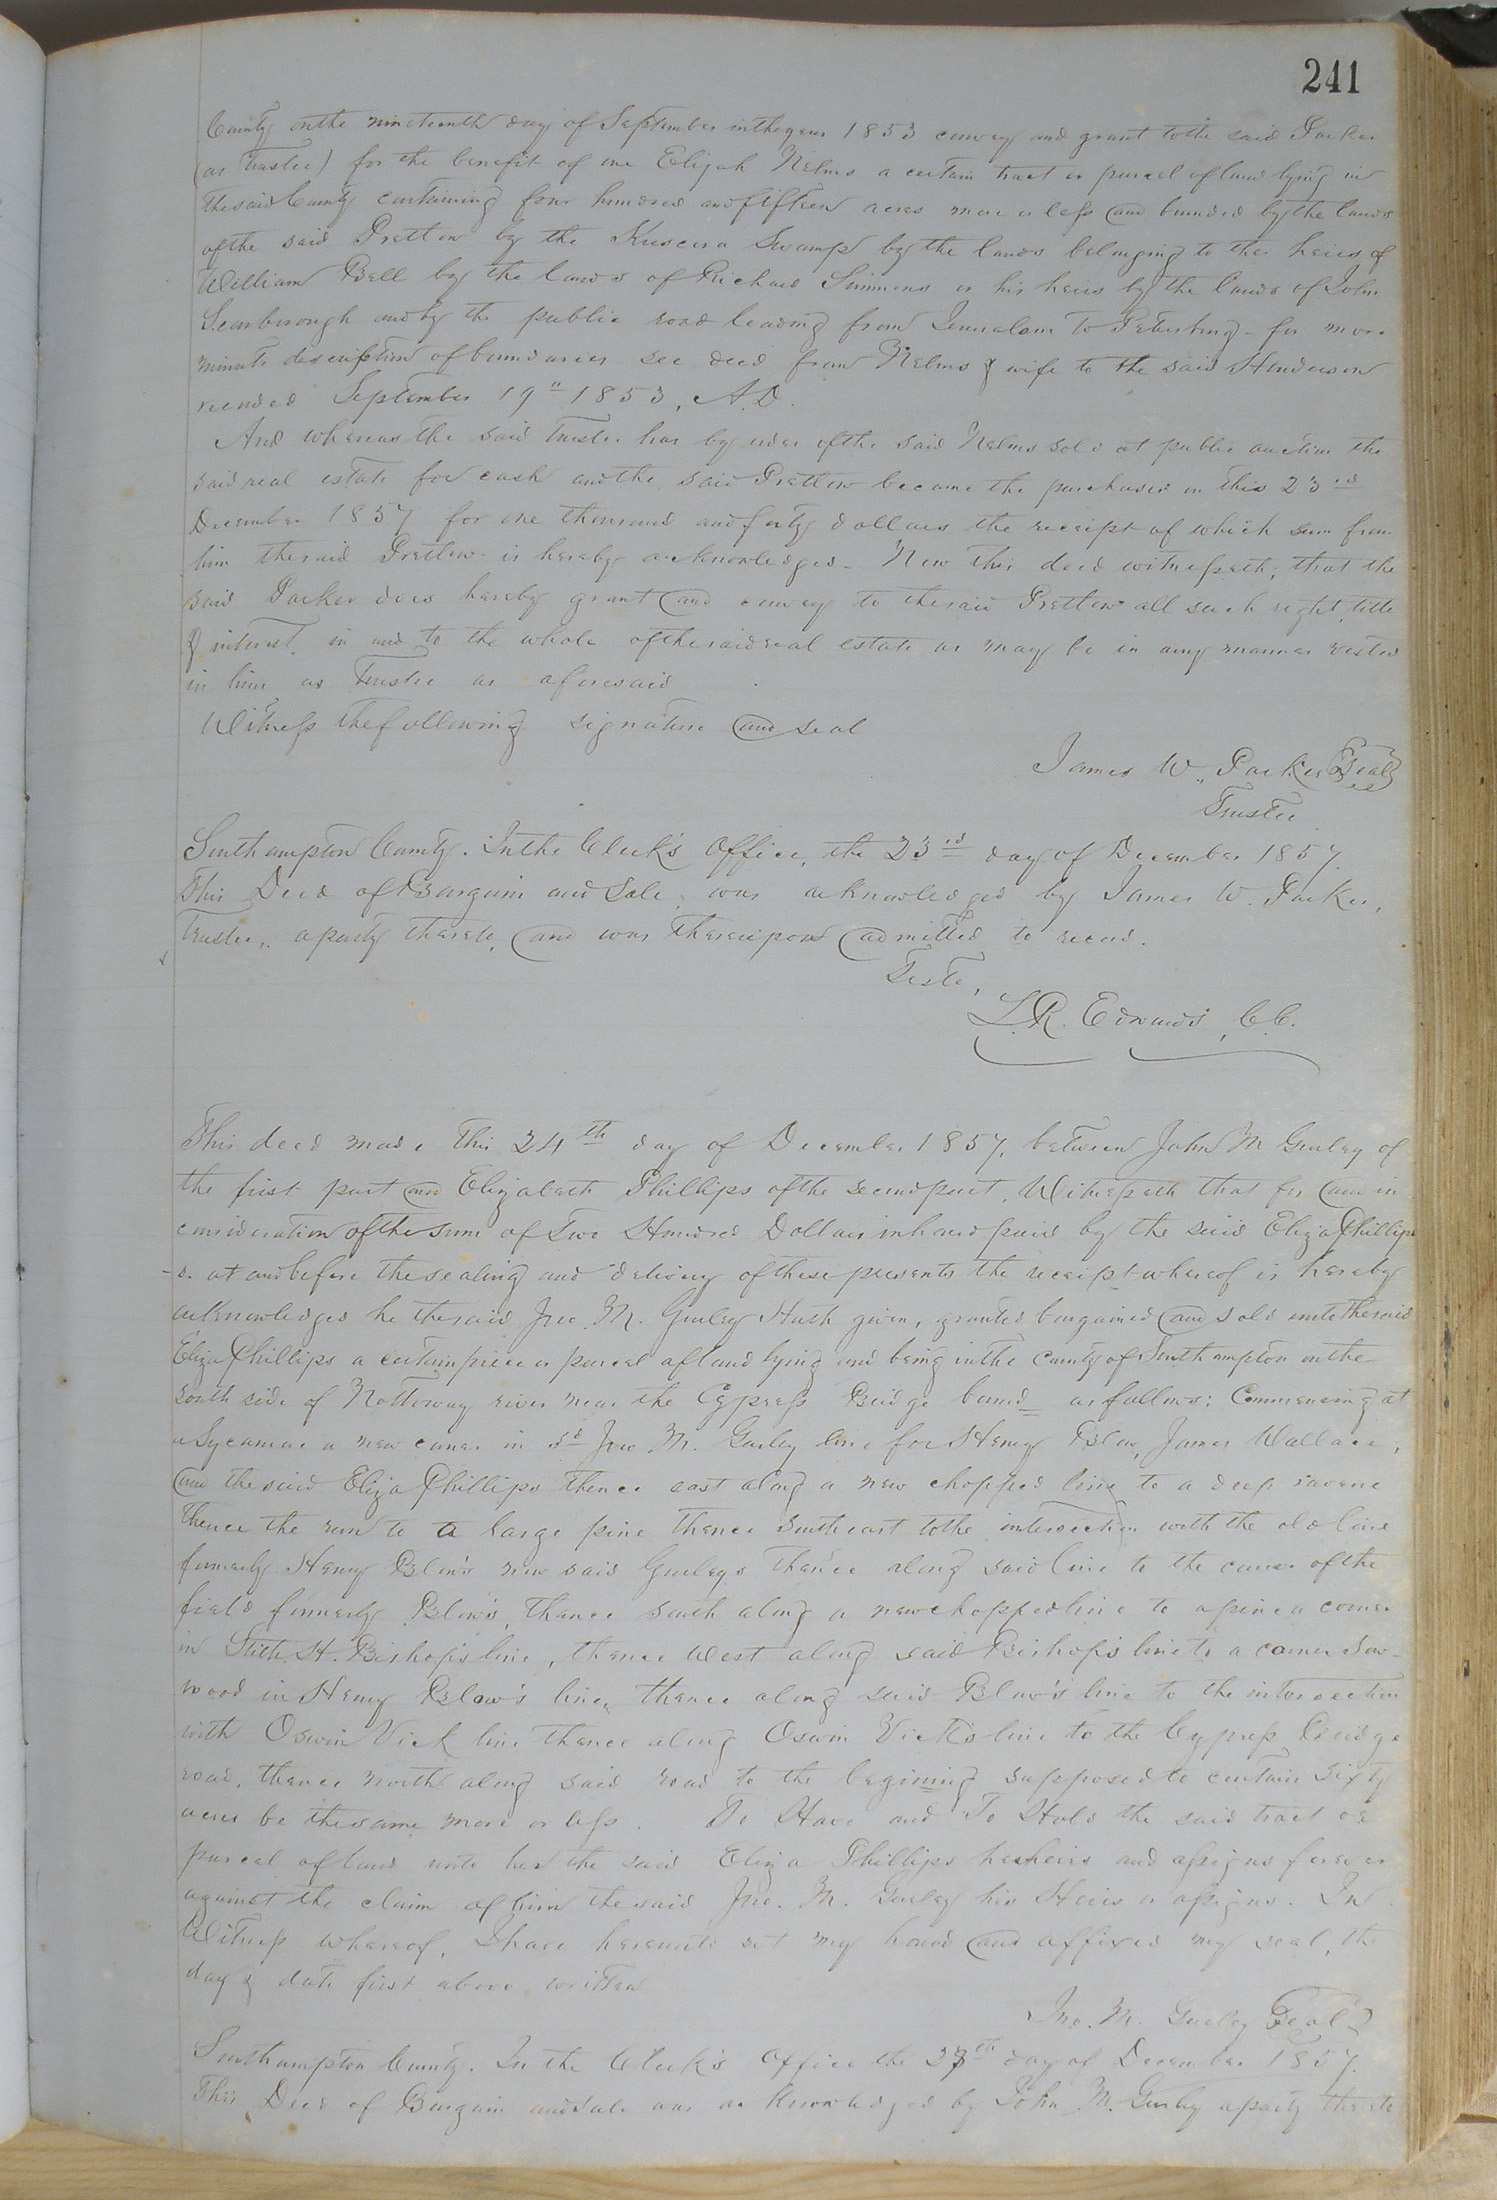 241
County on the nineteenth day of September in the year 1853 convey and grant to the said Parker
(as Trustee) for the benefit of one Elijah Nelms a certain tract or parcel of land lying in
the said County containing four hundred and fifteen acres more or less and bounded by the lands
of the said Pretlow by the Swamp by the lands belonging to the heirs of
William Bell by the lands of Richard Simmons or his heirs by the lands of John
Scarborough and by the public road leading from Jerusalem to Petersburg - for more
minute description of boundaries see deed from Nelms & wife to the said Henderson
recorded September 19" 1853, A.D.
And whereas the said trustee has by order of the said Nelms sold at public auction the
said real estate for cash and the said Pretlow became the purchaser on this 23rd
December 1857 for one thousand and forty dollars the receipt of which sum from
him the said Pretlow is hereby acknowledged - Now this deed witnesseth; that the
said Parker does hereby grant and convey to the said Pretlow all such right, title
& interest in and to the whole of the said real estate as may be in any manner vested
in him as Trustee as aforesaid
Witness the following signature and seal
James W. Parker Seal
Trustee
Southampton County. In the Clerk's Office, the 23rd day of December 1857.
This Deed of Bargain and Sale, was acknowledged by James W. Parker,
Trustee, a party thereto, and was thereupon admitted to record.
Teste,
L.R. Edwards, CC.
This deed made this 24th day of December 1857, between John M Gurley of
the first part and Elizabeth Phillips of the second part, Witnesseth that for and in
consideration of the sum of Two Hundred Dollars in hand paid by the said Eliza Phillip
-s. at and before the sealing and delivery of these presents the receipt whereof is hereby
acknowledged he the said Jno. M. Gurley Hath given, granted bargained and sold unto the said
Eliza Phillips a certain piece or parcel of land lying and being in the County of Southampton on the
south side of Nottoway river near the Cypress Bridge bound as follows: Commencing at
a Sycamore a new corner in sd Jno M. Gurley line for Henry Blow, James Wallace,
and the said Eliza Phillips thence east along a new chopped line to a deep ravene
thence the run to a large pine thence south east to the intersection with the old line
formerly Henry Blow's now said Gurleys thence along said line to the corner of the
field formerly Blow's, thence south along a new chopped line to a pine a corner
in Stith H. Bishop's line, thence West along said Bishop's line to a corner Sow-
wood in Henry Blow's line, thence along said Blow's line to the intersection
with Oswin Vick line thence along Oswin Vick's line to the Cypress Bridge
road, thence north along said road to the begining supposed to contain sixty
acres be the same more or less. To Have and To Hold the said tract or
parcel of land unto her the said Eliza Phillips her heirs and assigns forever
against the claim of him the said Jno. M. Gurley his Heirs or assigns. In
Witness whereof, I have hereunto set my hand and affixed my seal, the
day & date first above written
Jno. M. Gurley Seal
Southampton County. In the Clerk's Office the day of December 1857.
This Deed of Bargain and Sale was acknowledged by John M. Gurley a party thereto